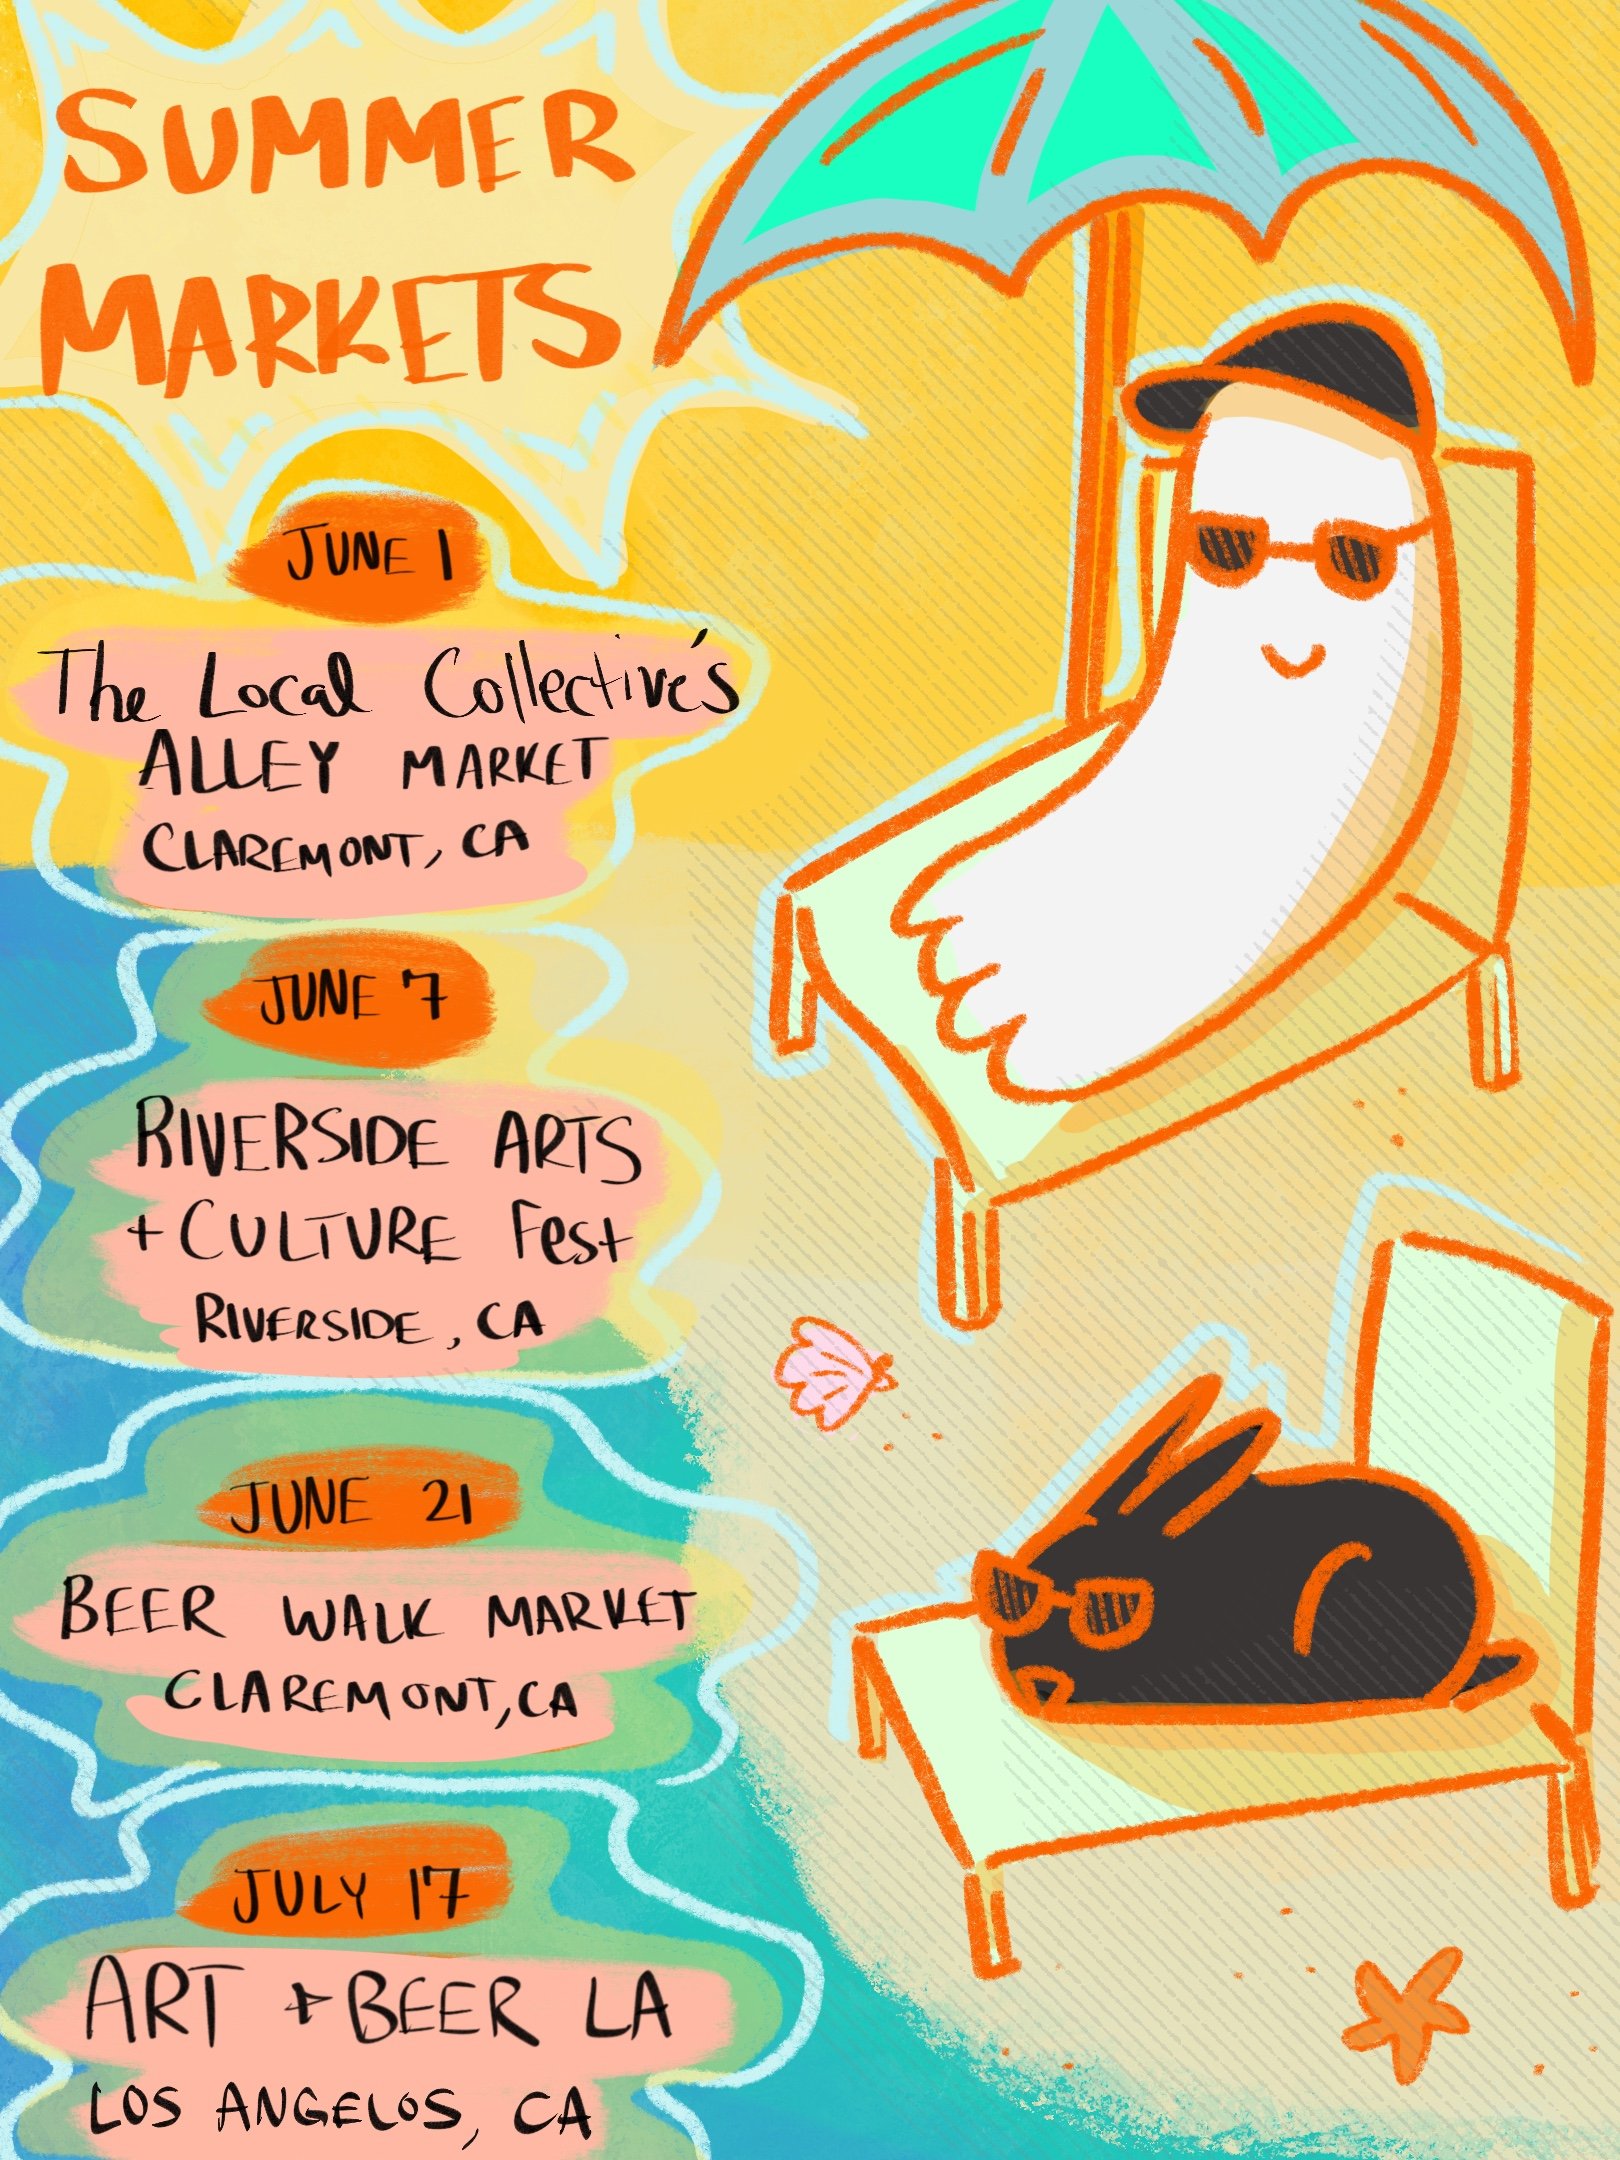 SUMMER
MARKETS
JUNE 1
The Local Collective's
ALLEY MARKET
CLAREMONT, CA
JUNE 7
RIVERSIDE ARTS
+ CULTURE Fest
RIVERSIDE, CA
JUNE 21
BEER WALK MARKET
CLAREMONT, CA
JULY 17
ART + BEER LA
LOS ANGELOS, CA